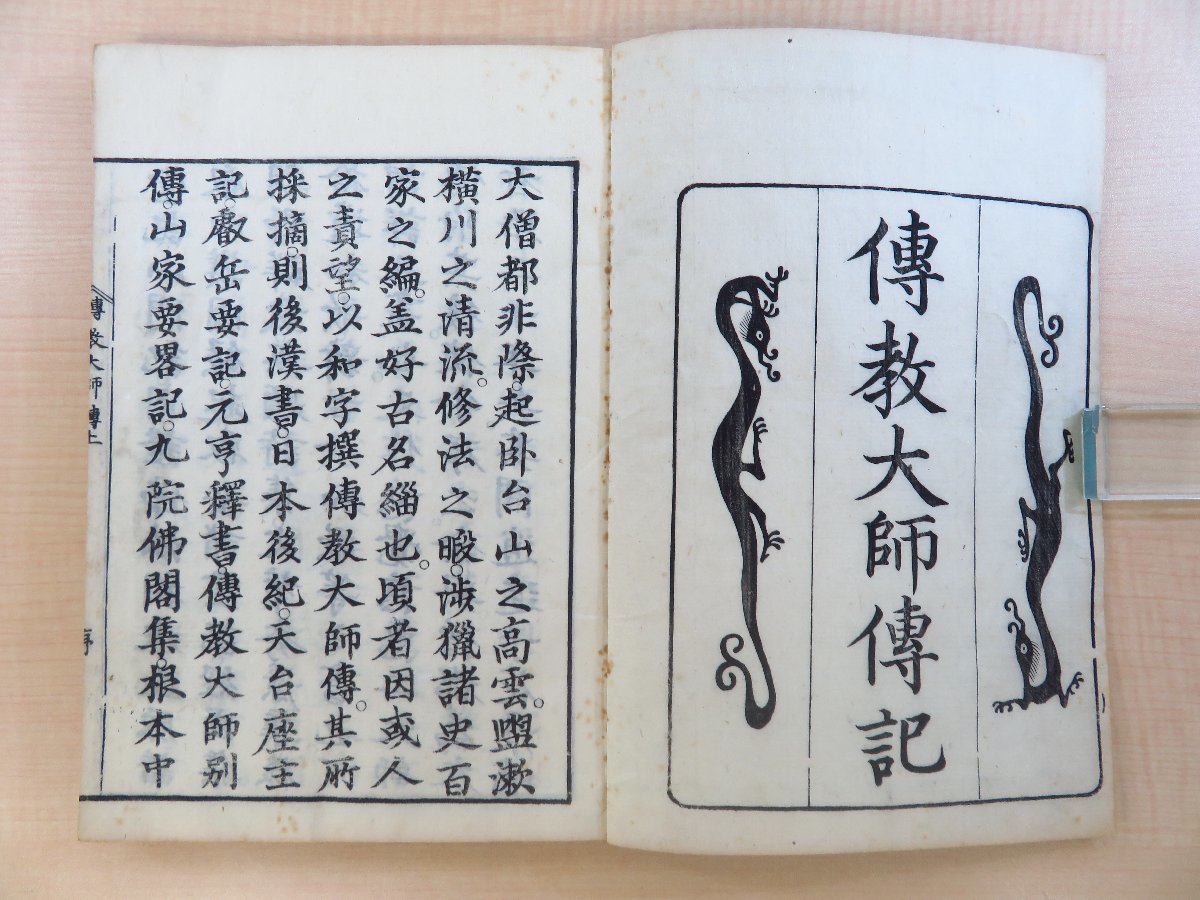 傳教大師傳記
大僧都非際。起卧台山之高雲。盥漱
横川之清流。修法之暇。涉獵諸史百
家之編。盖好古名緇也。頃者因或人
之責望。以和字撰傳教大師傳。其所
採摘。則後漢書。日本後紀。天台座主
記。叡岳要記。元亨釋書。傳教大師别
傳。山家要畧記。九院佛閣集。根本中
傳教大師傳上
序